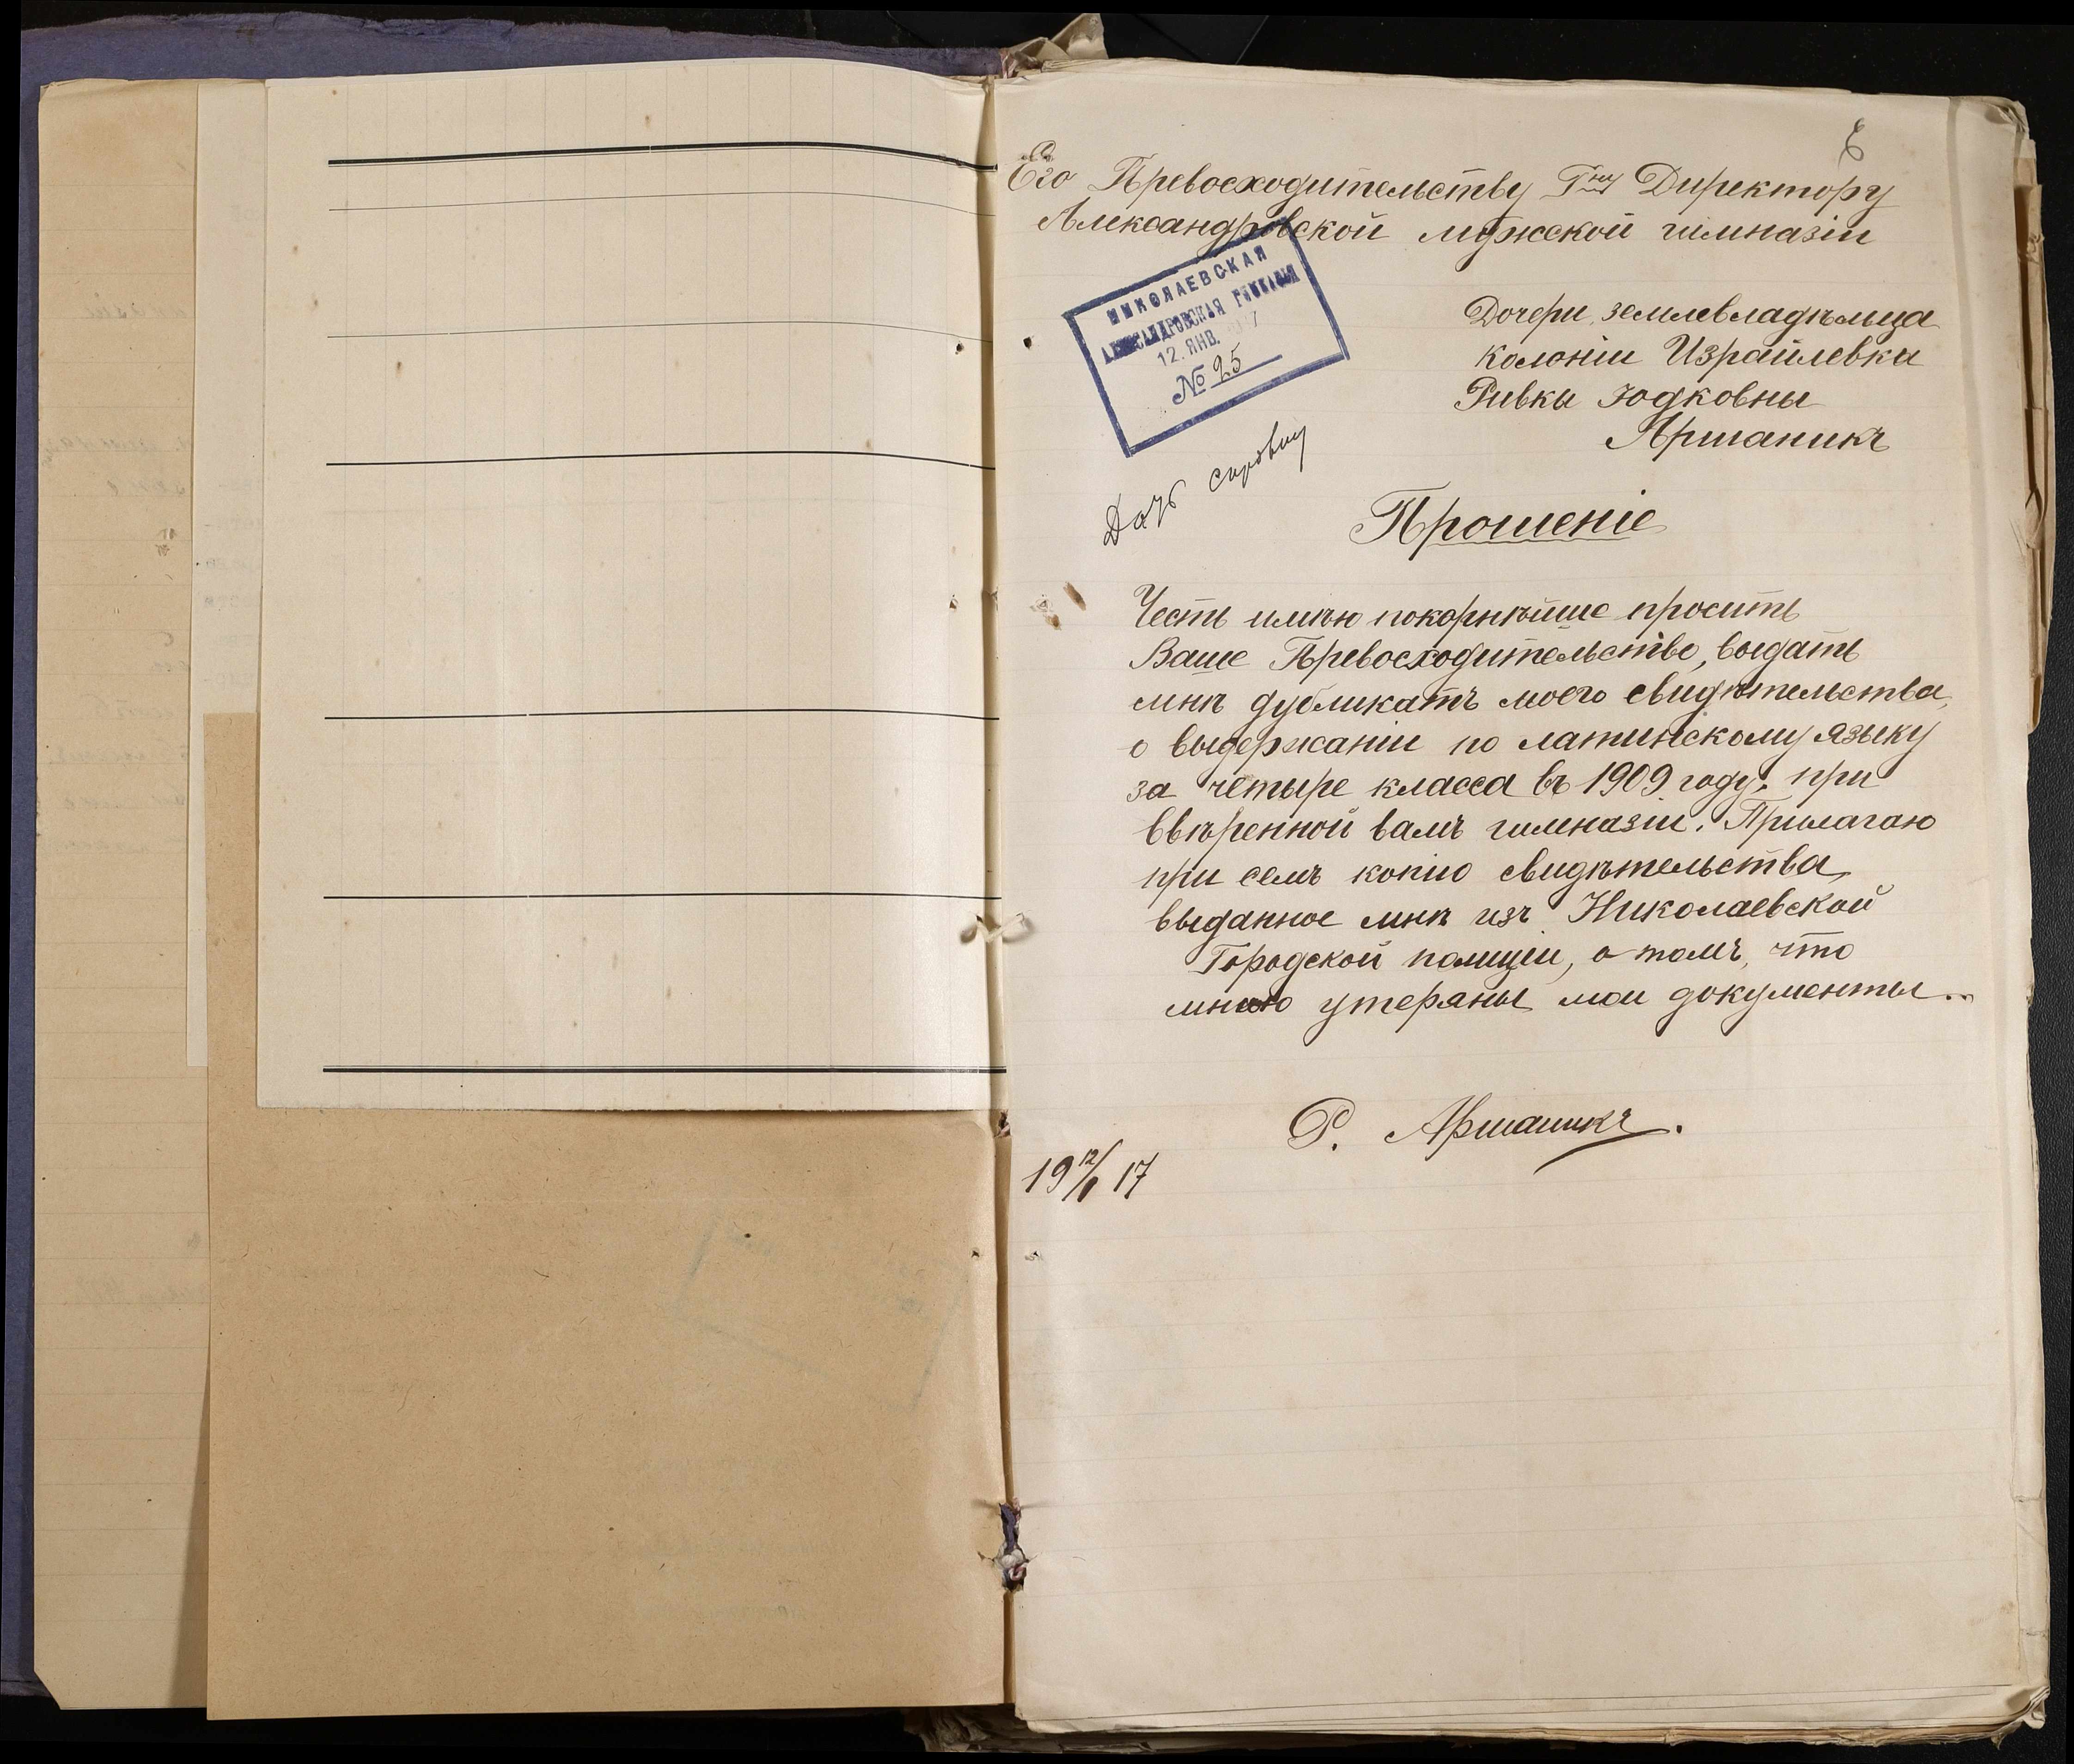 6
Его Превосходительству Г<sup>ну</sup> Директору
Александровской мужской гимназіи
НИКОЛАЕВСКАЯ
АЛЕКСАНДРОВСКАЯ ГИМНАЗІЯ
12. ЯНВ. 1917
№ 25
Дочери землевладѣльца
колоніи Израилевки
Ривки Юдковны
Аршаникъ
Дать справку
Прошеніе
Честь имѣю покорнѣйше просить
Ваше Превосходительство, выдать
мнѣ дубликатъ моего свидѣтельства,
о выдержаніи по латинскому языку
за четыре класса въ 1909 году, при
ввѣренной вамъ гимназіи. Прилагаю
при семъ копію свидѣтельства,
выданное мнѣ изъ Николаевской
Городской полиціи, о томъ, что
мною утеряны мои документы..
Р. Аршаникъ.
19 12/I 17